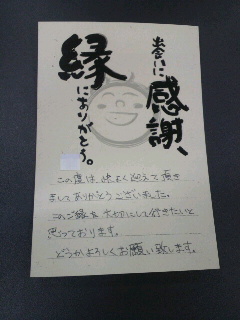 出会いに
感謝、
縁
にありがとう。
この度は、快よく迎えて頂き
ましてありがとうございました。
このご縁を大切にして行きたいと
思っております。
どうかよろしくお願い致します。